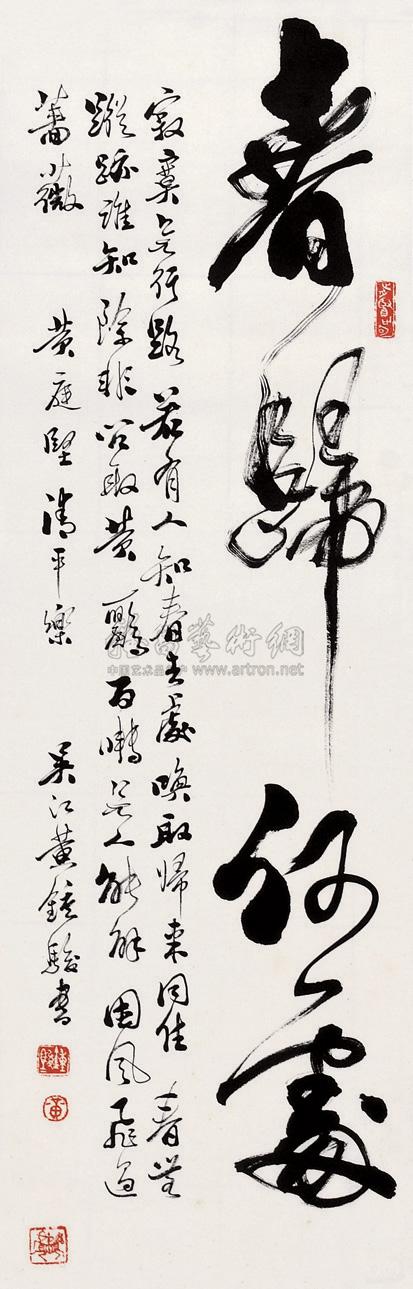 春歸何處
寂寞無行路若有人知春去處喚取歸來同住 春無
蹤跡誰知除非問取黃鸝百囀無人能解因風飛過
薔薇 黃庭堅清平樂 吳江黃鍾駿書
藝術網
www.artron.net